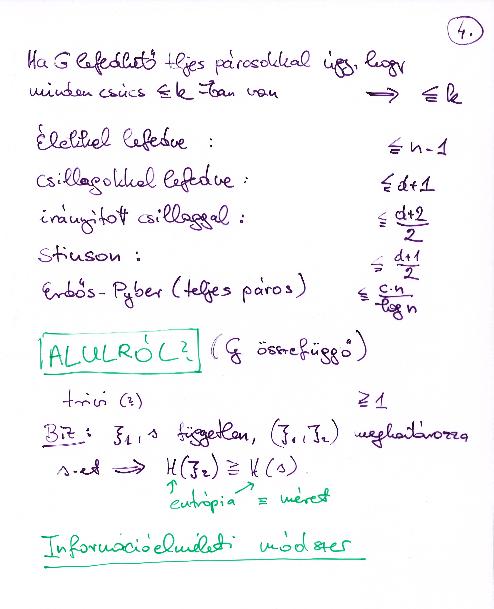 4.
Ha G lefedhető teljes párosokkal úgy, hogy
minden csúcs ≤ k-ban van ⟹ ≤ k
Élekkel lefedve : ≤ n-1
csillagokkal lefedve : ≤ d+1
irányított csillaggal : ≤ (d+2)/2
Stinson : ≤ (d+1)/2
Erdős-Pyber (teljes páros) ≤ c·n/log n
ALULRÓL? (G összefüggő)
trivi (?) ≥ 1
Biz : ξ₁, s független, (ξ₁, ξ₂) meghatározza
s-et ⟹ H(ξ₂) ≥ H(s)
entrópia = méret
Információelméleti módszer